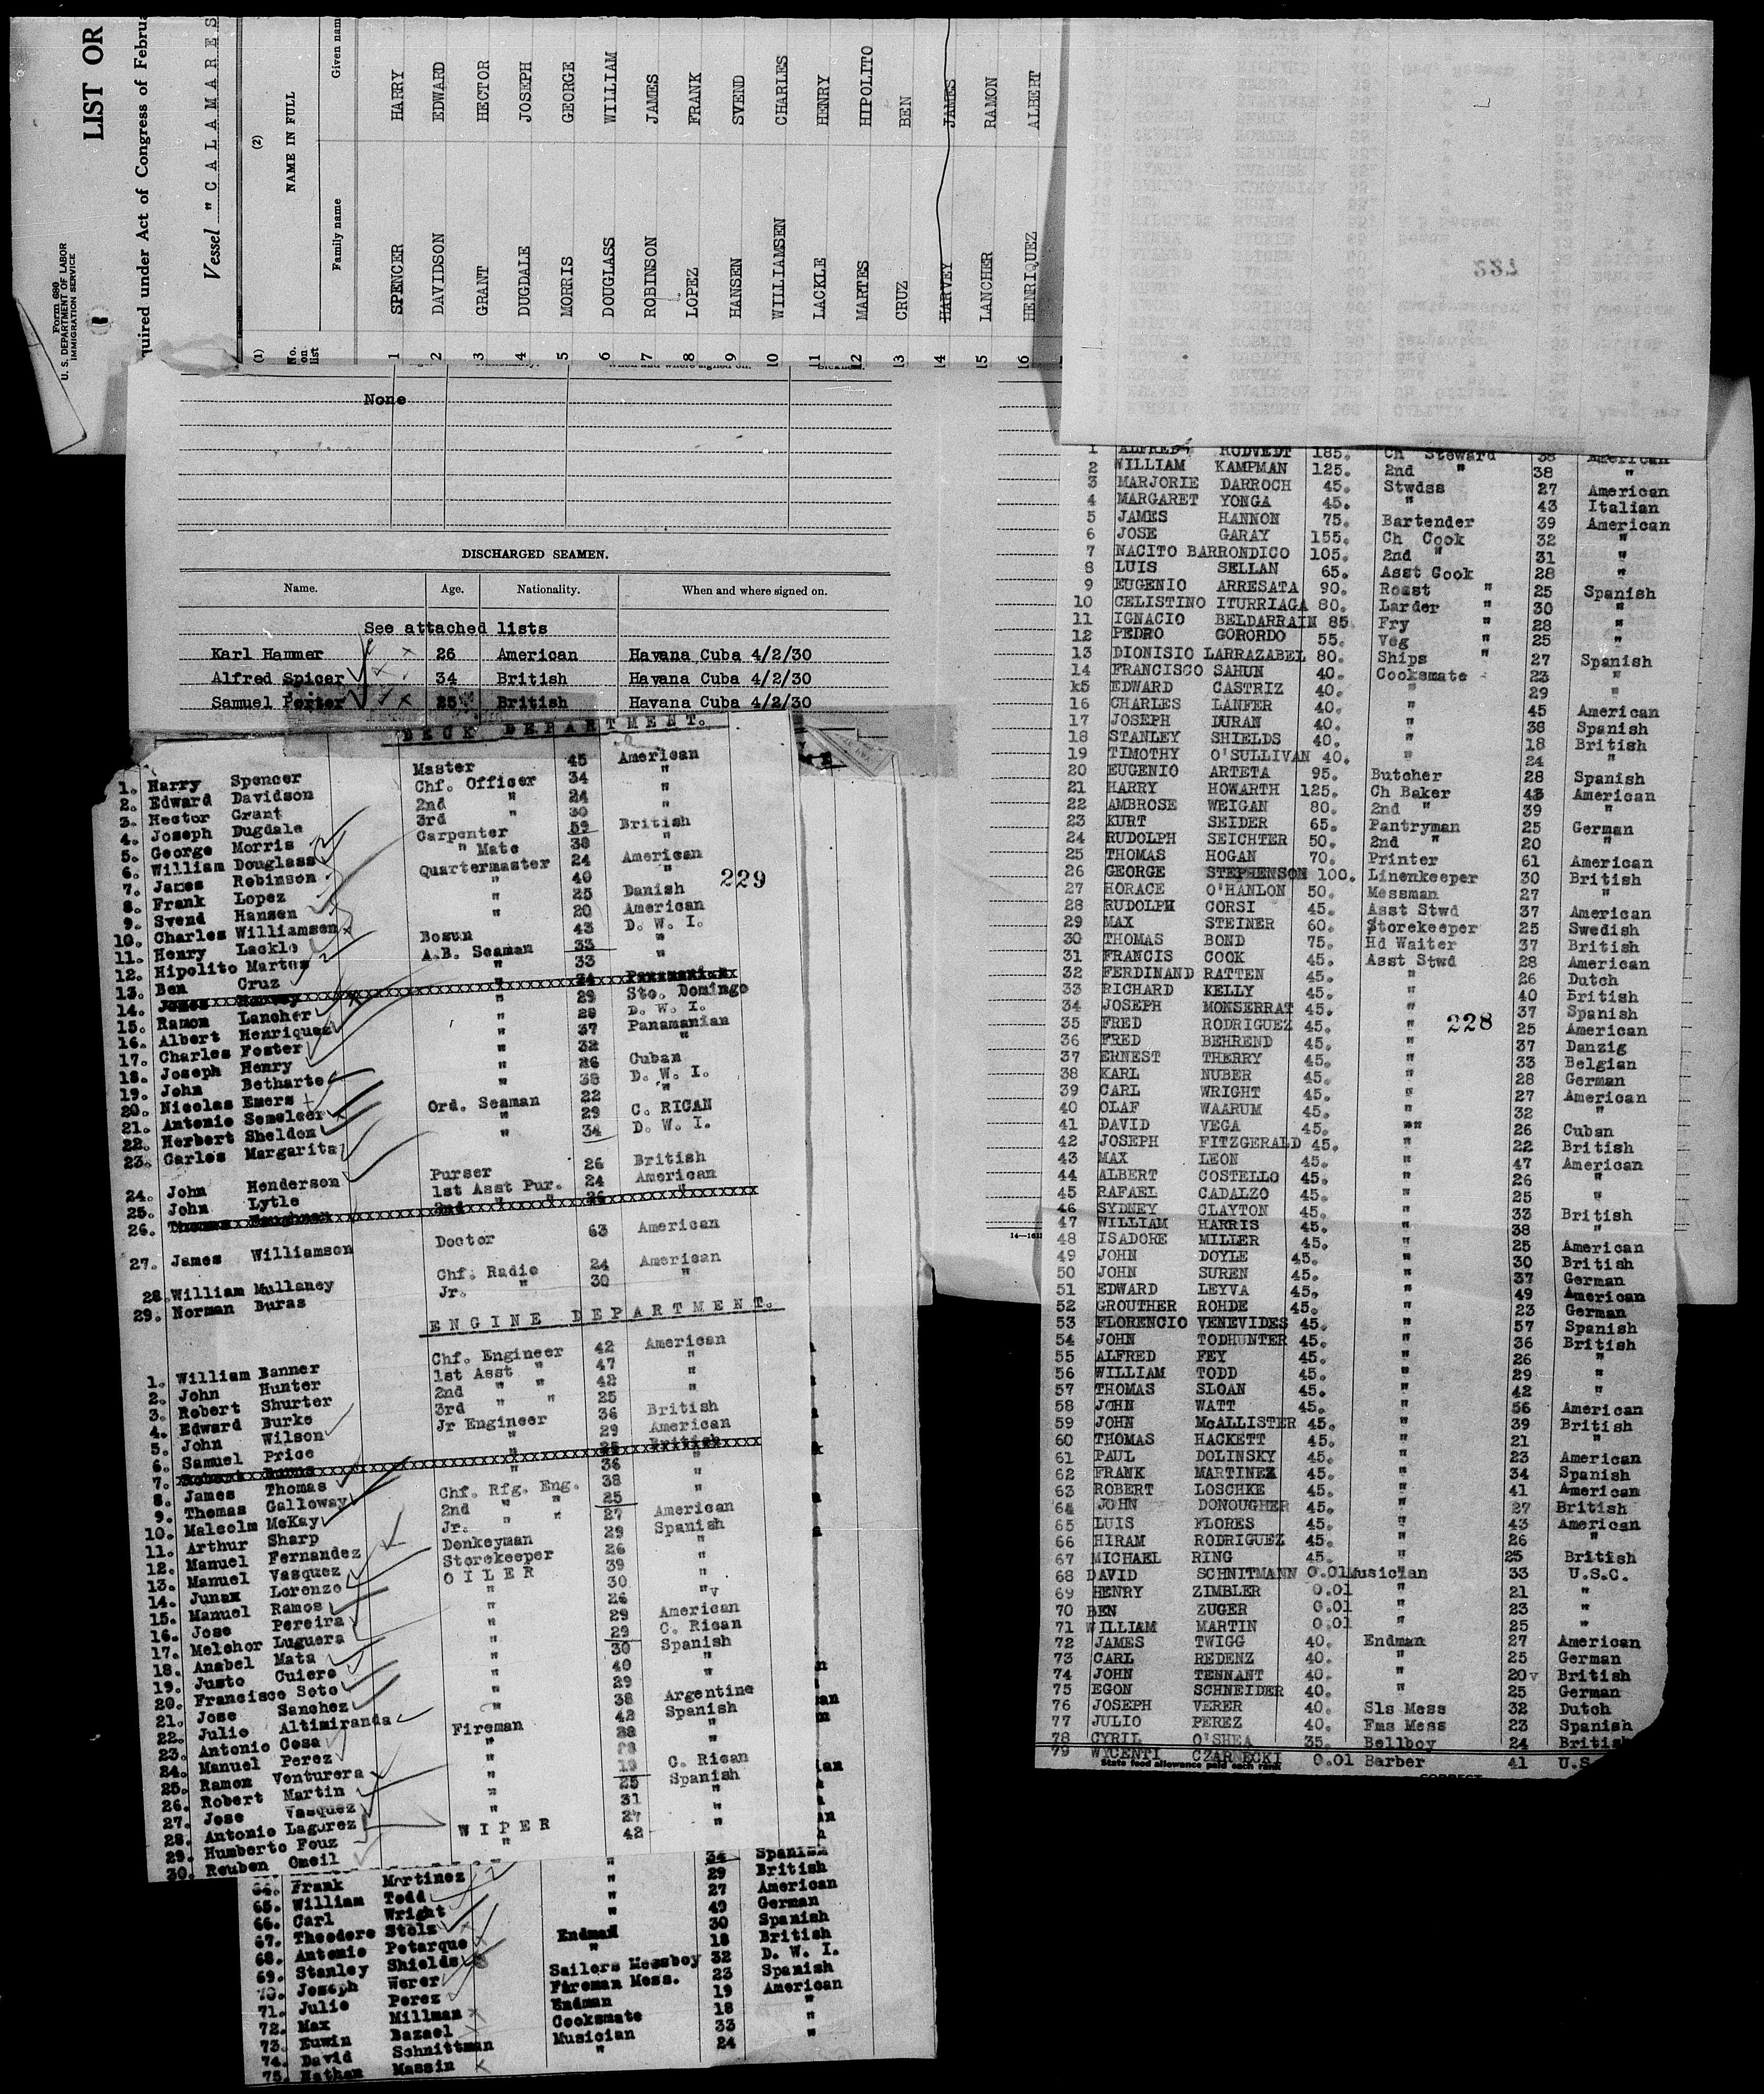 Form 680
U. S. DEPARTMENT OF LABOR
IMMIGRATION SERVICE
LIST OR
quired under Act of Congress of Februa
Vessel "CALAMARES
(1) (2)
No. on list NAME IN FULL
Family name Given nam
1 SPENCER HARRY
2 DAVIDSON EDWARD
3 GRANT HECTOR
4 DUGDALE JOSEPH
5 MORRIS GEORGE
6 DOUGLASS WILLIAM
7 ROBINSON JAMES
8 LOPEZ FRANK
9 HANSEN SVEND
10 WILLIAMSEN CHARLES
11 LACKLE HENRY
12 MARTES HIPOLITO
13 CRUZ BEN
14 HARVEY JAMES
15 LANCHER RAMON
16 HENRIQUEZ ALBERT
None
DISCHARGED SEAMEN.
Name. Age. Nationality. When and where signed on.
See attached lists
Karl Hammer 26 American Havana Cuba 4/2/30
Alfred Spicer 34 British Havana Cuba 4/2/30
Samuel Porter 25 British Havana Cuba 4/2/30
DECK DEPARTMENT.
1. Harry Spencer Master 45 American
2. Edward Davidson Chf. Officer 34 "
3. Hector Grant 2nd " 24 "
4. Joseph Dugdale 3rd " 30 "
5. George Morris Carpenter 59 British
6. William Douglass " Mate 38 "
7. James Robinson Quartermaster 24 American
8. Frank Lopez " 40 "
229
9. Svend Hansen " 25 Danish
10. Charles Williamsen " 20 American
11. Henry Lackle Bosun 43 D. W. I.
12. Hipolito Martes A.B. Seaman 33 "
13. Ben Cruz " 33 "
14. James Harvey " 34 Panamanian
15. Ramon Lancher " 29 Sto. Domingo
16. Albert Henriquez " 28 D. W. I.
17. Charles Foster " 37 Panamanian
18. Joseph Henry " 32 "
19. John Betharte " 26 Cuban
20. Nicolas Emers " 38 D. W. I.
21. Antonio Semeleer Ord. Seaman 22 "
22. Herbert Sheldon " 29 C. RICAN
23. Carlos Margarita " 34 D. W. I.
24. John Henderson Purser 26 British
25. John Lytle 1st Asst Pur. 24 American
26. Thomas 2nd " " 26 "
27. James Williamson Doctor 63 American
28. William Mullaney Chf. Radio 24 American
29. Norman Buras Jr. " 30 "
ENGINE DEPARTMENT.
1. William Banner Chf. Engineer 42 American
2. John Hunter 1st Asst " 47 "
3. Robert Shurter 2nd " " 42 "
4. Edward Burke 3rd " " 25 "
5. John Wilson Jr Engineer 36 British
6. Samuel Price " 29 American
7. Robert Burns " 25 British
8. James Thomas " 36 "
9. Thomas Galloway Chf. Rfg. Eng. 38 "
10. Malcolm McKay 2nd " " 25 "
11. Arthur Sharp Jr. " " 27 American
12. Manuel Fernandez Donkeyman 29 Spanish
13. Manuel Vasquez Storekeeper 26 "
14. Junax Lorenzo OILER 39 "
15. Manuel Ramos " 30 "
16. Jose Pereira " 26 "v
17. Melchor Luguera " 29 American
18. Anabel Mata " 29 C. Rican
19. Justo Cuiero " 30 Spanish
20. Francisco Soto " 40 "
21. Jose Sanchez " 29 "
22. Julio Altimiranda " 38 Argentine
23. Antonio Cosa Fireman 42 Spanish
24. Manuel Perez " 28 "
25. Ramon Venturera " 28 "
26. Robert Martin " 19 C. Rican
27. Jose Vasquez " 25 Spanish
28. Antonio Lagurez " 31 "
29. Humberto Fouz WIPER 27 "
30. Reuben Omeil " 42 "
64. Frank Martinez " 34 Spanish
65. William Todd " 29 British
66. Carl Wright " 27 American
67. Theodore Stolz " 49 German
68. Antonio Petarque Endman 30 Spanish
69. Stanley Shields " 18 British
70. Joseph Werer Sailors Messboy 32 D. W. I.
71. Julio Perez Fireman Mess. 23 Spanish
72. Max Millman Endman 19 American
73. Euwin Bazael Cooksmate 18 "
74. David Schnittman Musician 33 "
75. Nathan Massin " 24 "
1 ALFRED RUDVEDT 185. Ch Steward 38 American
2 WILLIAM KAMPMAN 125. 2nd " 38 "
3 MARJORIE DARROCH 45. Stwdss 27 American
4 MARGARET YONGA 45. " 43 Italian
5 JAMES HANNON 75. Bartender 39 American
6 JOSE GARAY 155. Ch Cook 32 "
7 NACITO BARRONDICO 105. 2nd " 31 "
8 LUIS SELLAN 65. Asst Cook 28 "
9 EUGENIO ARRESATA 90. Roast " 25 Spanish
10 CELISTINO ITURRIAGA 80. Larder " 30 "
11 IGNACIO BELDARRAIN 85. Fry " 28 "
12 PEDRO GORORDO 55. Veg " 25 "
13 DIONISIO LARRAZABEL 80. Ships " 27 Spanish
14 FRANCISCO SAHUN 40. Cooksmate 23 "
k5 EDWARD CASTRIZ 40. " 29 "
16 CHARLES LANFER 40. " 45 American
17 JOSEPH DURAN 40. " 38 Spanish
18 STANLEY SHIELDS 40. " 18 British
19 TIMOTHY O'SULLIVAN 40. " 24 "
20 EUGENIO ARTETA 95. Butcher 28 Spanish
21 HARRY HOWARTH 125. Ch Baker 43 American
22 AMBROSE WEIGAN 80. 2nd " 39 "
23 KURT SEIDER 65. Pantryman 25 German
24 RUDOLPH SEICHTER 50. 2nd " 20 "
25 THOMAS HOGAN 70. Printer 61 American
26 GEORGE STEPHENSON 100. Linenkeeper 30 British
27 HORACE O'HANLON 50. Messman 27 "
28 RUDOLPH CORSI 45. Asst Stwd 37 American
29 MAX STEINER 60. Storekeeper 25 Swedish
30 THOMAS BOND 75. Hd Waiter 37 British
31 FRANCIS COOK 45. Asst Stwd 28 American
32 FERDINAND RATTEN 45. " 26 Dutch
33 RICHARD KELLY 45. " 40 British
34 JOSEPH MONSERRAT 45. " 37 Spanish
228
35 FRED RODRIGUEZ 45. " 25 American
36 FRED BEHREND 45. " 37 Danzig
37 ERNEST THERRY 45. " 33 Belgian
38 KARL NUBER 45. " 28 German
39 CARL WRIGHT 45. " 27 American
40 OLAF WAARUM 45. " 32 "
41 DAVID VEGA 45. "" 26 Cuban
42 JOSEPH FITZGERALD 45. " 22 British
43 MAX LEON 45. " 47 American
44 ALBERT COSTELLO 45. " 26 "
45 RAFAEL CADALZO 45. " 25 "
46 SYDNEY CLAYTON 45. " 33 British
47 WILLIAM HARRIS 45. " 38 "
48 ISADORE MILLER 45. " 25 American
49 JOHN DOYLE 45. " 30 British
50 JOHN SUREN 45. " 37 German
51 EDWARD LEYVA 45. " 49 American
52 GROUTHER ROHDE 45. " 23 German
53 FLORENCIO VENEVIDES 45. " 57 Spanish
54 JOHN TODHUNTER 45. " 36 British
55 ALFRED FEY 45. " 26 "
56 WILLIAM TODD 45. " 29 "
57 THOMAS SLOAN 45. " 42 "
58 JOHN WATT 45. " 56 American
59 JOHN McALLISTER 45. " 39 British
60 THOMAS HACKETT 45. " 21 "
61 PAUL DOLINSKY 45. " 23 American
62 FRANK MARTINEZ 45. " 34 Spanish
63 ROBERT LOSCHKE 45. " 41 American
64 JOHN DONOUGHER 45. " 27 British
65 LUIS FLORES 45. " 43 American
66 HIRAM RODRIGUEZ 45. " 26 "
67 MICHAEL RING 45. " 25 British
68 DAVID SCHNITMANN 0.01 Musician 33 U.S.C.
69 HENRY ZIMBLER 0.01 " 21 "
70 BEN ZUGER 0.01 " 23 "
71 WILLIAM MARTIN 0.01 " 25 "
72 JAMES TWIGG 40. Endman 27 American
73 CARL REDENZ 40. " 25 German
74 JOHN TENNANT 40. " 20v British
75 EGON SCHNEIDER 40. " 25 German
76 JOSEPH VERER 40. Sls Mess 32 Dutch
77 JULIO PEREZ 40. Fms Mess 23 Spanish
78 CYRIL O'SHEA 35. Bellboy 24 British
79 WYCENTI CZARNECKI 0.01 Barber 41 U.S
State food allowance paid each rank